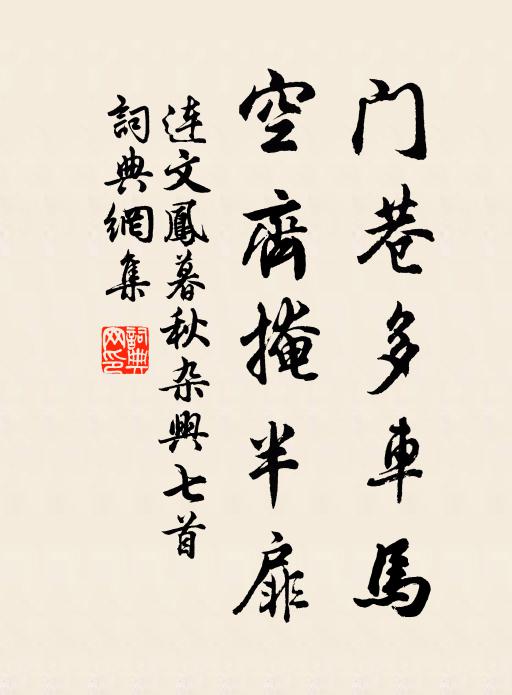 门巷多車馬
空齊掩半扉
连文鳳暮秋杂興七首
詞典網集
詞典
网印